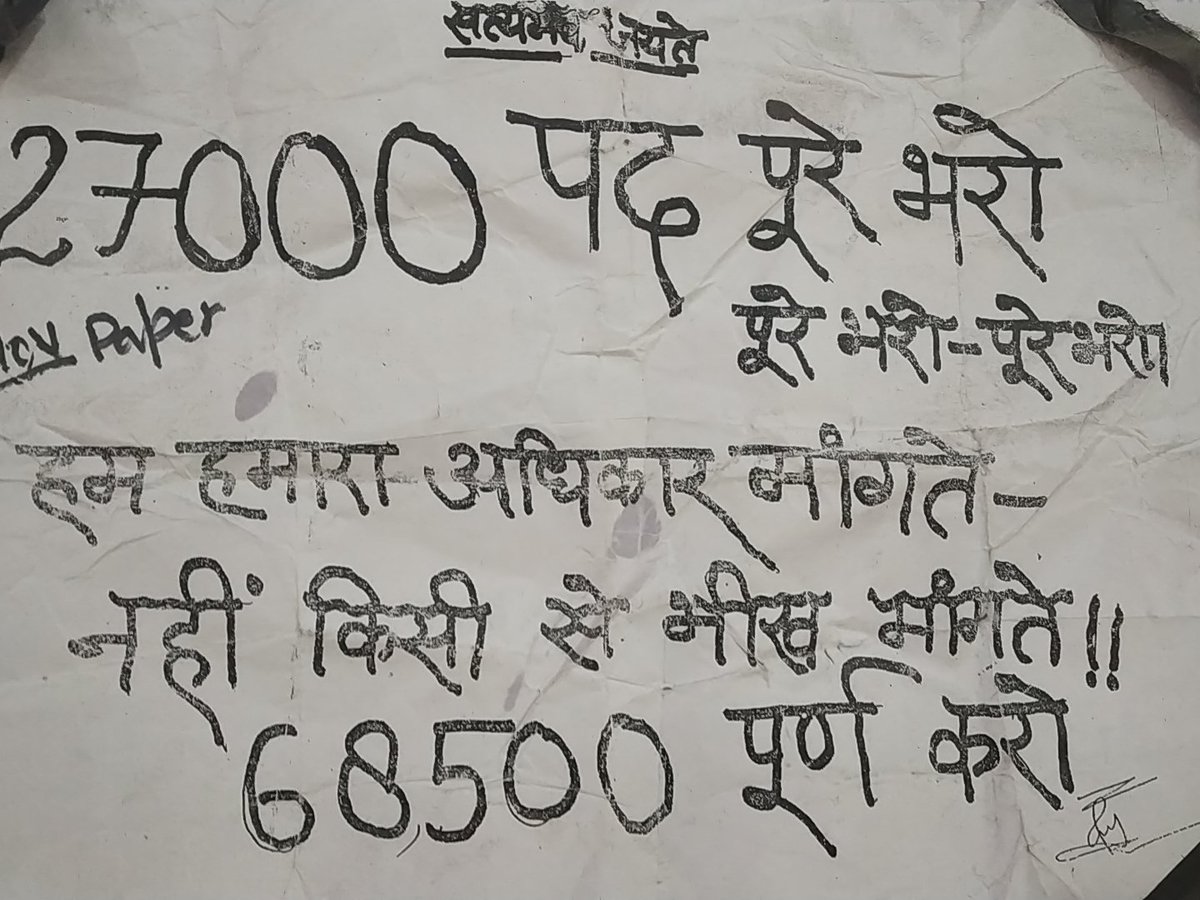 सत्यमेव जयते
27000 पद पूरे भरो
Paper
पूरे भरो-पूरे भरो
हम हमारा अधिकार मांगते-
नहीं किसी से भीख मांगते!!
68,500 पूर्ण करो